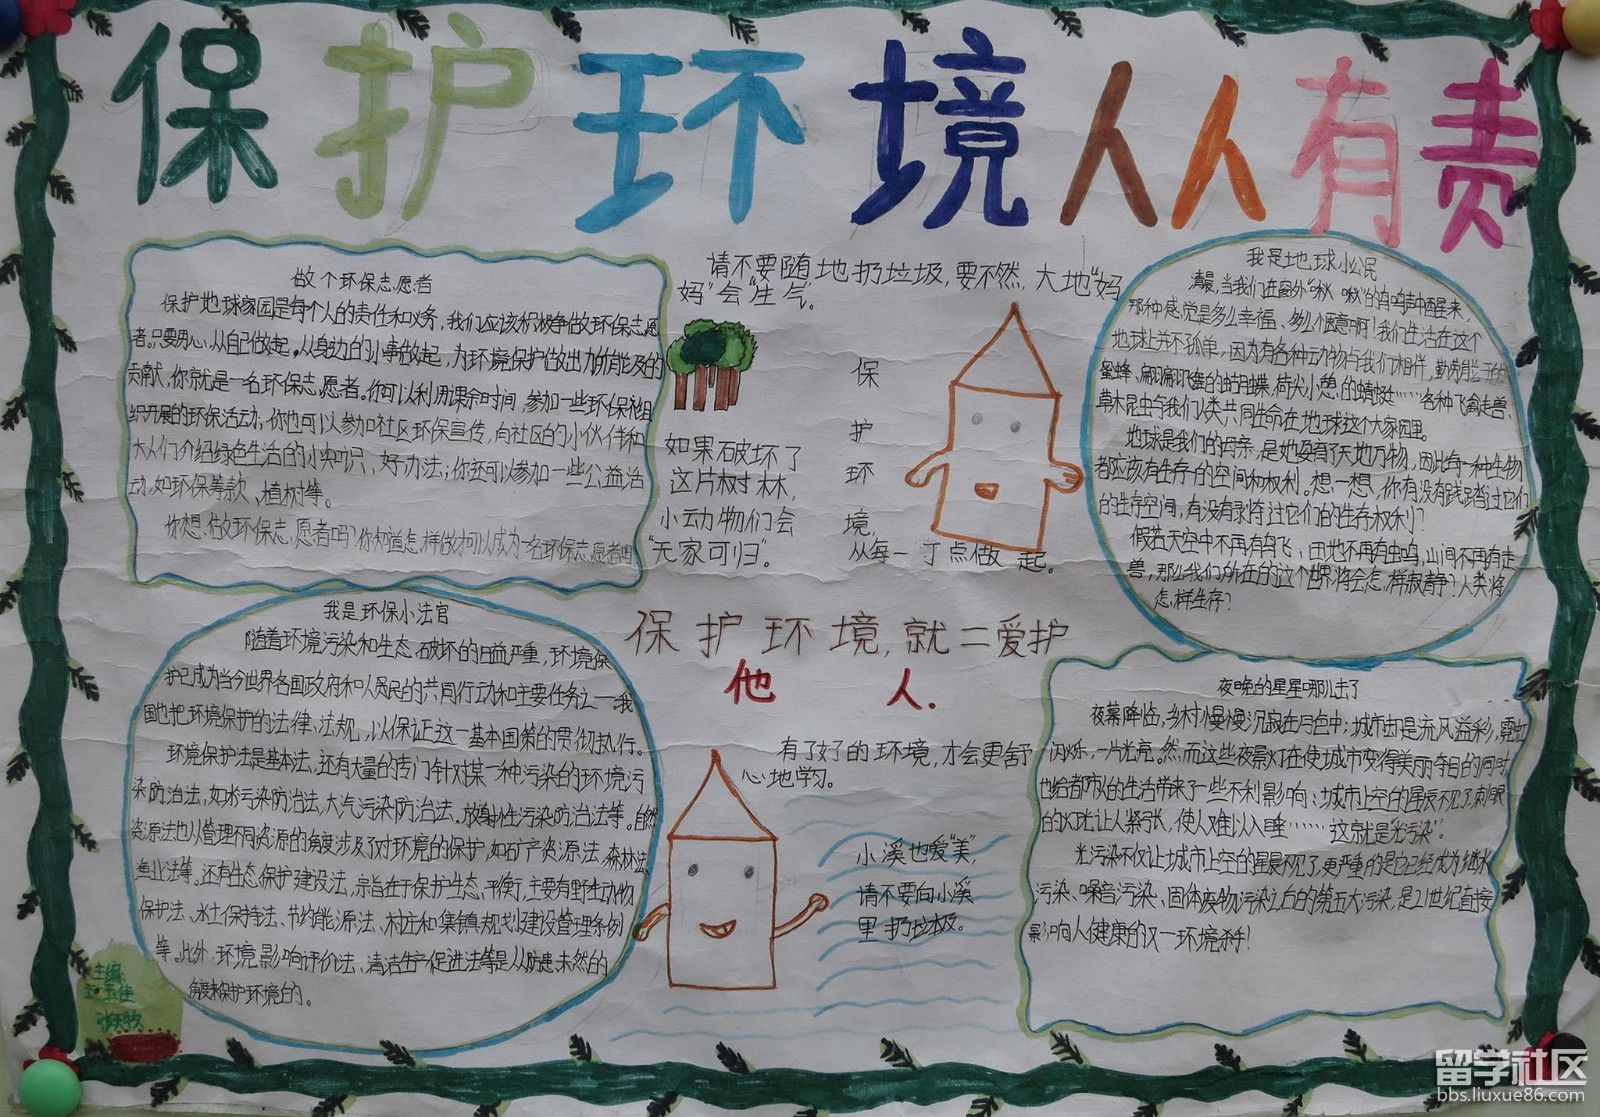 保护环境人人有责
做个环保志愿者
保护地球家园是每个人的责任和义务，我们应该积极争做环保志愿
者。只要用心，从自己做起。从身边的小事做起，为环境保护做出力所能及的
贡献，你就是一名环保志愿者。你可以利用课余时间，参加一些环保社组
织开展的环保活动，你也可以参加社区环保宣传，向社区的小伙伴和
大人们介绍绿色生活的小知识、好办法；你还可以参加一些公益活
动，如环保筹款、植树等。
你想做环保志愿者吗？你知道怎样做才可以成为一名环保志愿者吗
请不要随地扔垃圾，要不然，大地“妈
妈”会“生气”。
如果破坏了
这片树林，
小动物们会
“无家可归”。
保
护
环
境，
从每一丁点做起。
我是地球小公民
清晨，当我们在窗外“啾、啾”的鸟鸣声中醒来，
那种感觉是多么幸福、多么惬意啊！我们生活在这个
地球上并不孤单，因为有各种动物与我们相伴，勤劳
蜜蜂、翩翩飞舞的蝴蝶、荷尖小憩的蜻蜓……各种飞禽走兽、
草木昆虫与我们人类共同生命在地球这个大家园里。
地球是我们的母亲，是她孕育了天地万物，因此每一种生物
都应该有生存的空间和权利。想一想，你有没有践踏过它们
的生存空间，有没有剥夺过它们的生存权利？
假若天空中不再有鸟飞，田地不再有虫鸣，山间不再有走
兽，那么我们所在的这个世界将会怎样寂静？人类将
怎样生存？
保护环境，就二爱护
他人.
我是环保小法官
随着环境污染和生态破坏的日益严重，环境保
护已成为当今世界各国政府和人民的共同行动和主要任务之一我
国也把环境保护的法律、法规，以保证这一基本国策的贯彻执行。
环境保护法是基本法，还有大量的专门针对某一种污染的环境污
染防治法，如水污染防治法、大气污染防治法、放射性污染防治法等。自然
资源法也从管理不同资源的角度涉及了对环境的保护，如矿产资源法、森林法、
渔业法等。还有生态保护建设法，宗旨在于保护生态平衡，主要有野生动物
保护法、水土保持法、节约能源法、村庄和集镇规划建设管理条例
等。此外，环境影响评价法、清洁生产促进法等是从防患未然的
角度来保护环境的。
有了好的环境，才会更舒
心地学习。
小溪也爱“美”，
请不要向小溪
里扔垃圾。
夜晚的星星哪儿去了
夜幕降临，乡村慢慢沉寂在月色中；城市却是流风溢彩，霓虹
闪烁，一片光亮。然而这些夜景灯在使城市变得美丽夺目的同时，
也给都市人的生活带来了一些不利影响：城市上空的星辰不见了，刺眼
的灯光让人紧张，使人难以入睡……这就是“光污染”。
光污染不仅让城市上空的星辰不见了，更严重的是它已经成为继水
污染、噪音污染、固体废物污染之后的第五大污染，是21世纪直接
影响人健康的又一环境杀手！
主编
留学社区
bbs.liuxue86.com